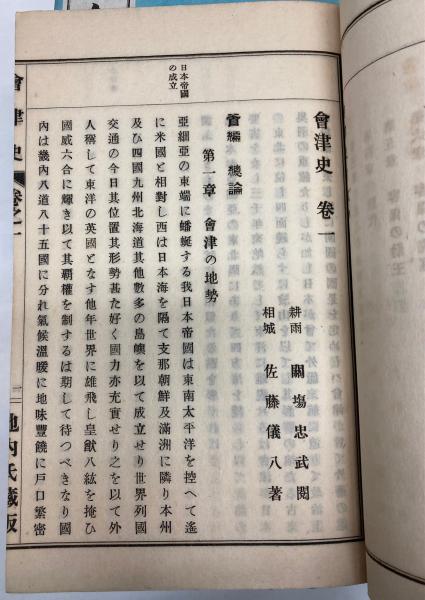 會津史　卷一
耕雨　關場忠武閱
相城　佐藤儀八著
首編　總論
第一章　會津の地勢
日本帝國
の成立
亞細亞の東端に蟠蜒する我日本帝國は東南太平洋を控へて遙
に米國と相對し西は日本海を隔て支那朝鮮及滿洲に隣り本州
及ひ四國九州北海道其他數多の島嶼を以て成立せり世界列國
交通の今日其位置其形勢甚た好く國力亦充實せり之を以て外
人稱して東洋の英國となす他年世界に雄飛し皇猷八紘を掩ひ
國威六合に輝き以て其覇權を制するは期して待つべきなり國
內は畿內八道八十五國に分れ氣候溫暖に地味豐饒に戶口繁密
會津史
卷之一
一
池內氏藏版